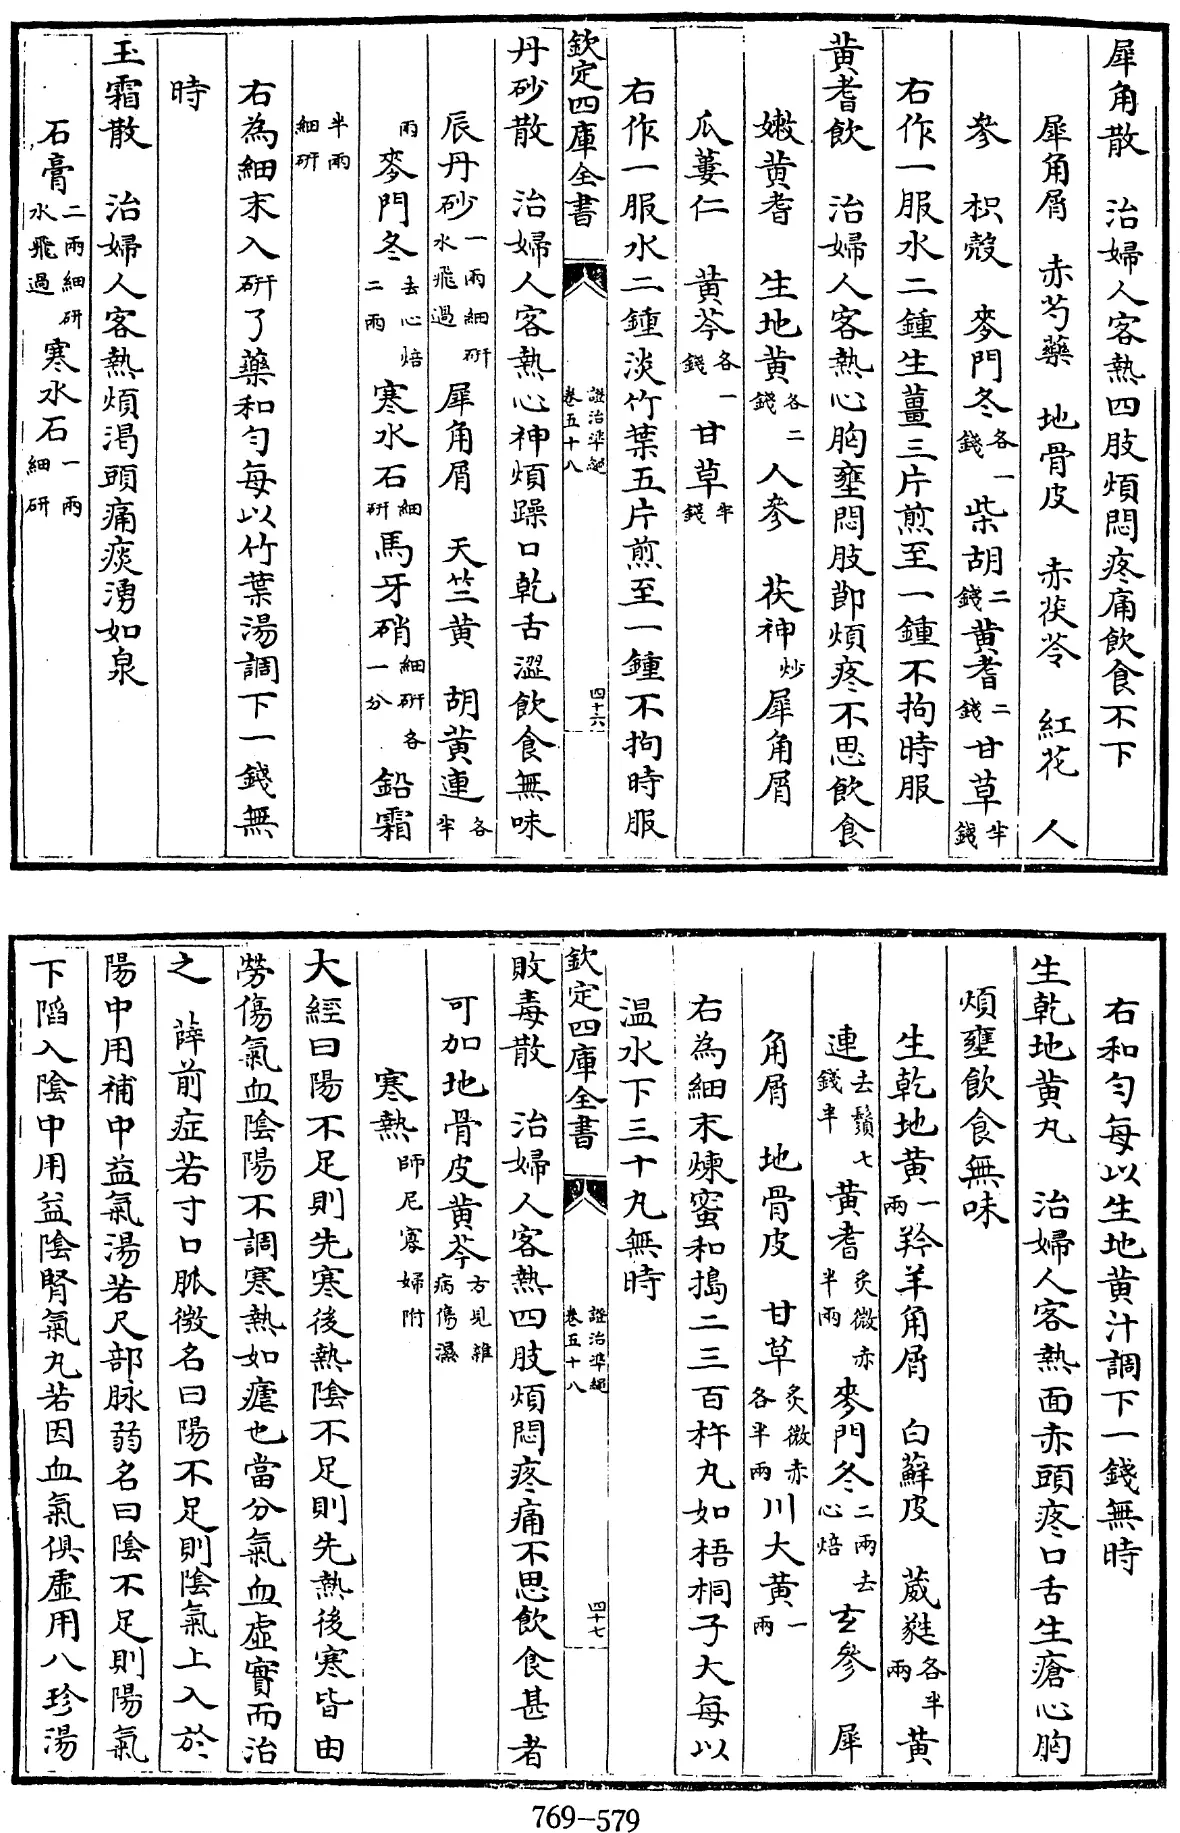 犀角散　治婦人客熱四肢煩悶疼痛飲食不下
犀角屑　赤芍藥　地骨皮　赤茯苓　紅花　人
參　枳殼　麥門冬各一錢　柴胡二錢　黄耆二錢　甘草半錢
右作一服水二鍾生薑三片煎至一鍾不拘時服
黄耆飲　治婦人客熱心胸壅悶肢節煩疼不思飲食
嫩黄耆　生地黄各二錢　人參　茯神炒　犀角屑
瓜蔞仁　黄芩各一錢　甘草半錢
右作一服水二鍾淡竹葉五片煎至一鍾不拘時服
欽定四庫全書　證治準繩卷五十八　四十六
丹砂散　治婦人客熱心神煩躁口乾舌澀飲食無味
辰丹砂一兩細研水飛過　犀角屑　天竺黄　胡黄連各半
兩　麥門冬去心焙二兩　寒水石細研　馬牙硝細研各一分　鉛霜
半兩細研
右為細末入研了藥和勻每以竹葉湯調下一錢無
時
玉霜散　治婦人客熱煩渴頭痛痰湧如泉
石膏二兩細研水飛過　寒水石一兩細研
右和勻每以生地黄汁調下一錢無時
生乾地黄丸　治婦人客熱面赤頭疼口舌生瘡心胸
煩壅飲食無味
生乾地黄一兩　羚羊角屑　白蘚皮　葳蕤各半兩　黄
連去鬚七錢半　黄耆炙微赤半兩　麥門冬二兩去心焙　玄參　犀
角屑　地骨皮　甘草炙微赤各半兩　川大黄一兩
右為細末煉蜜和搗二三百杵丸如梧桐子大每以
温水下三十丸無時
欽定四庫全書　證治準繩卷五十八　四十七
敗毒散　治婦人客熱四肢煩悶疼痛不思飲食甚者
可加地骨皮黄芩方見雜病傷濕
寒熱師尼寡婦附
大經曰陽不足則先寒後熱陰不足則先熱後寒皆由
勞傷氣血陰陽不調寒熱如瘧也當分氣血虛實而治
之　薛前症若寸口脈微名曰陽不足則陰氣上入於
陽中用補中益氣湯若尺部脉弱名曰陰不足則陽氣
下䧟入陰中用益陰腎氣丸若因血氣俱虛用八珍湯
769-579